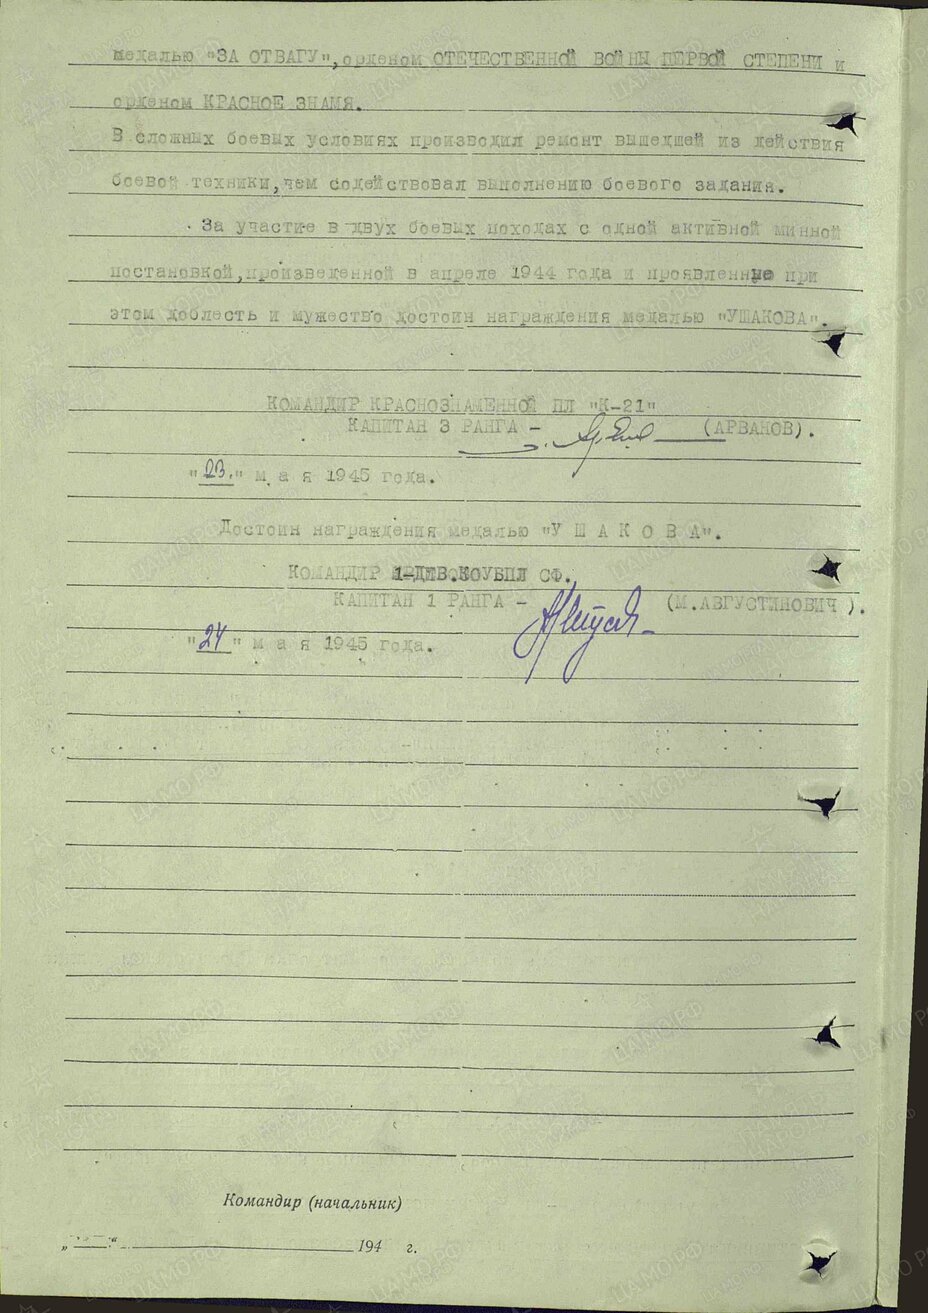 медалью "ЗА ОТВАГУ", орденом ОТЕЧЕСТВЕННОЙ ВОЙНЫ ПЕРВОЙ СТЕПЕНИ и
орденом КРАСНОЕ ЗНАМЯ.
В сложных боевых условиях производил ремонт вышедшей из действия
боевой техники, чем содействовал выполнению боевого задания.
За участие в двух боевых походах с одной активной минной
постановкой, произведенной в апреле 1944 года и проявленные при
этом доблесть и мужество достоин награждения медалью "УШАКОВА".
КОМАНДИР КРАСНОЗНАМЕННОЙ ПЛ "К-21"
КАПИТАН 3 РАНГА - (АРВАНОВ).
"23." м а я 1945 года.
Достоин награждения медалью "У Ш А К О В А".
КОМАНДИР СФ.
КАПИТАН 1 РАНГА - (М.АВГУСТИНОВИЧ ).
"24" м а я 1945 года.
Командир (начальник)
„ “ 194 г.